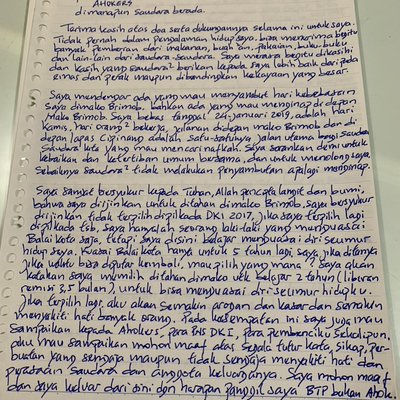 AHOKERS
dimanapun saudara berada.
Terima kasih atas doa serta dukungannya selama ini untuk saya.
Tidak pernah dalam pengalaman hidup saya, bisa menerima begitu
banyak pemberian dari makanan, buah²an, pakaian, buku-buku
dan lain-lain dari saudara-saudara. Saya merasa begitu dikasihi
dan kasih yang saudara² berikan kepada saya, lebih baik dari pada
emas dan perak maupun dibandingkan kekayaan yang besar.
Saya mendengar ada yang mau menyambut hari kebebasan
Saya dimako Brimob. bahkan ada yang mau menginap didepan
Mako Brimob. Saya bebas tanggal 24 januari 2019, adalah hari
Kamis, hari orang² bekerja, jalanan didepan mako Brimob dan di
depan lapas Cipinang adalah satu-satunya jalan utama bagi saudara
saudara kita yang mau mencari nafkah. Saya sarankan demi untuk
kebaikan dan ketertiban umum bersama, dan untuk menolong saya,
Sebaiknya saudara² tidak melakukan penyambutan apalagi menginap.
Saya sangat bersyukur kepada Tuhan, Allah pencipta langit dan bumi,
bahwa saya diijinkan untuk ditahan dimako Brimob. Saya bersyukur
diijinkan tidak terpilih dipilkada DKI 2017, jika saya terpilih lagi
dipilkada tsb, saya hanyalah seorang laki-laki yang menguasai
Balai kota saja, tetapi saya disini belajar menguasai diri seumur
hidup saya. Kuasai Balai kota hanya untuk 5 tahun saja. jika ditanya
jika waktu bisa diputar kembali, mau pilih yang mana? Saya akan
katakan saya memilih ditahan dimako utk belajar 2 tahun (liburan
remisi 3,5 bulan), untuk bisa menguasai diri seumur hidupku.
jika terpilih lagi, aku akan semakin arogan dan kasar dan semakin
menyakiti hati banyak orang. Pada kesempatan ini saya juga mau
sampaikan kepada Ahokers, para PNS DKI, para pembenciku sekalipun,
aku mau sampaikan mohon maaf atas segala tutur kata, sikap, per-
buatan yang sengaja maupun tidak sengaja menyakiti hati dan
perasaan saudara dan anggota keluarganya. Saya mohon maaf
dan saya keluar dari sini dgn harapan panggil saya BTP bukan Ahok.